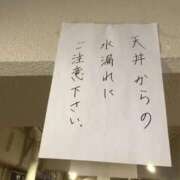 天井からの
水漏れに
ご注意下さい。